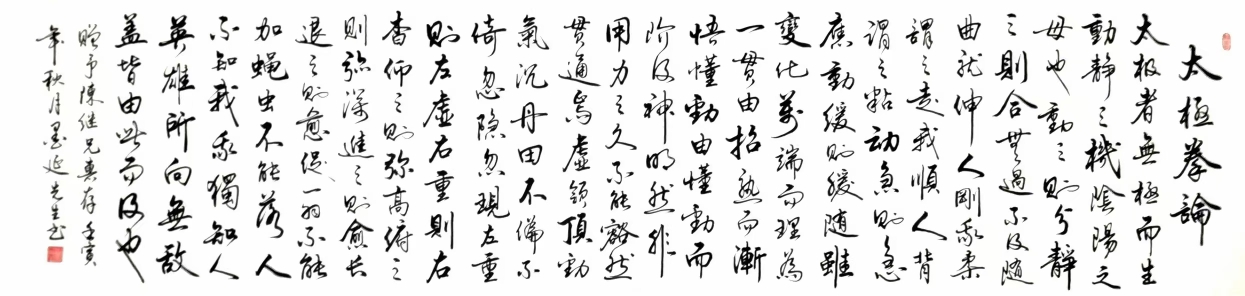 太極拳論
太极者無極而生
動靜之機陰陽之
母也動之則分靜
之則合無過不及随
曲就伸人剛我柔
謂之走我順人背
謂之粘动急則急
應動緩則緩随雖
變化萬端而理為
一貫由招熟而漸
悟懂勁由懂勁而
阶及神明然非
用力之久不能豁然
貫通焉虛領頂勁
氣沉丹田不偏不
倚忽隐忽現左重
則左虛右重則右
杳仰之則弥高俯之
則弥深進之則愈长
退之則愈促一羽不能
加蝇虫不能落人
不知我我獨知人
英雄所向無敌
盖皆由此而及也
贈予陳继兄惠存壬寅
年秋月墨延先生书